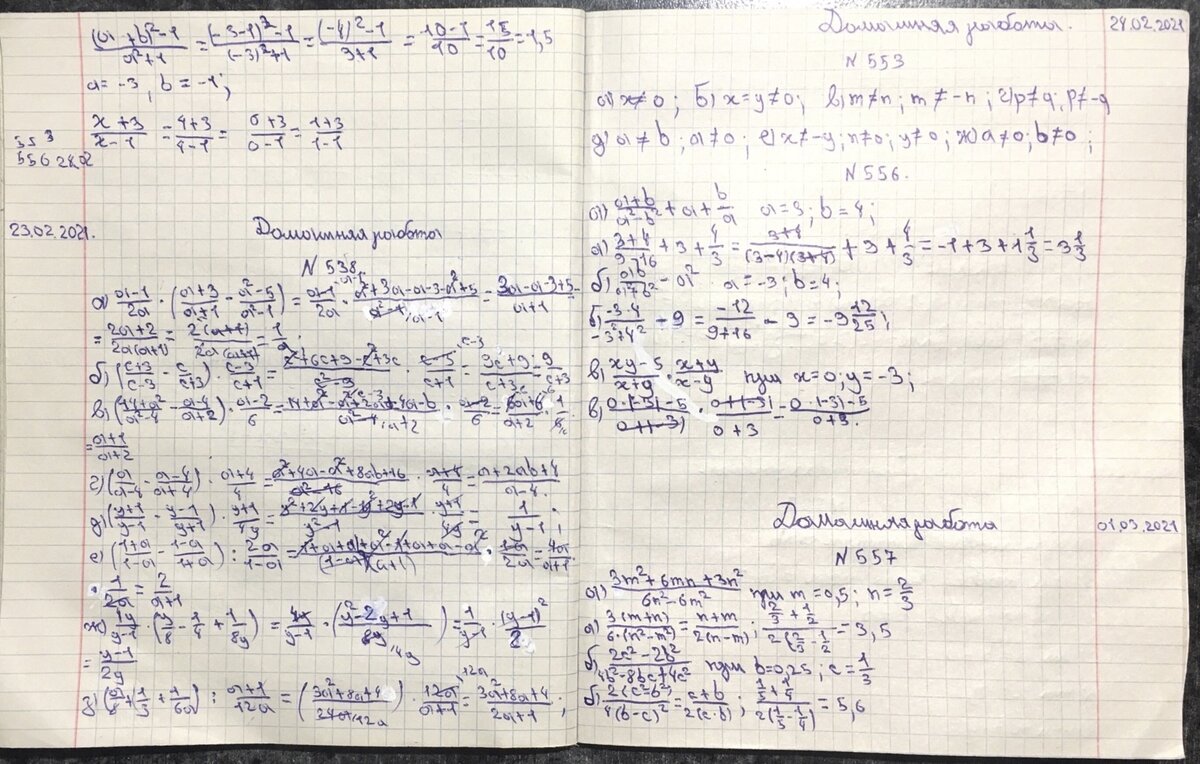 (a+b)²-1/a²+1 = (-3-1)²-1/(-3)²+1 = (-4)²-1/9+1 = 10-1/10 = 15/10 = 1,5
a = -3, b = -1;
x+3/x-1 = 4+3/4-1 = 0+3/0-1 = 1+3/1-1
553
556 24.02
23.02.2021.
Домашняя работа
N 538
а) a-1/2a · (a+3/a+1 - a²-5/a²-1) = a-1/2a · a²+3a-a-3-a²+5/a²-1 = 3a-a-3+5/a+1
= 2a+2/2a(a+1) = 2(a+1)/2a(a+1) = 1
б) (c+3/c-3 - c/c+3) · c-3/c+1 = c²+6c+9-c²+3c/c²-9 · c-3/c+1 = 9/c+3
= a+1/a+2
г) (a/a-4 - a-4/a+4) : a+4/4 = a²+4a-a²+8ab+16/a²-16 · a+4/4 = a+2ab+4/a-4.
д) (y+1/y-1 - y-1/y+1) : y+1/4y = y²+2y+1-y²+2y-1/y²-1 · y+1/4y = 1/y-1;
е) (1+a/1-a - 1-a/1+a) : 2a/1-a = 1+a+a+a²-1+a+a-a²/(1-a)(a+1) · 1-a/2a = 4a/a+1.
· 1/2a = 2/a+1
ж) 4y/y-1 · (y/8 - 1/4 + 1/8y) = 4y/y-1 · (y²-2y+1/8y) = 1/y-1 · (y-1)²/2
= y-1/2y
з) (a/8 + 1/3 + 1/6a) : a+1/12a = (3a²+8a+4/24a) · 12a/a+1 = 3a²+8a+4/2a+1;
Домашняя работа.
24.02.2021
N 553
а) x≠0; б) x=y≠0; в) m≠n; m≠-n; г) p≠q; p≠-q
д) a≠b; a≠0; е) x≠-y; n≠0; y≠0; ж) a≠0; b≠0;
N 556.
а) a+b/a²-b² + a + b/a a=3; b=4;
а) 3+4/9-16 + 3 + 4/3 = 3+4/(3-4)(3+4) + 3 + 4/3 = -1+3+1 1/3 = 3 1/3
б) ab/a²+b² - a² a=-3; b=4;
б) -3·4/-3²+4² - 9 = -12/9+16 - 9 = -9 12/25;
в) xy-5/x+y · x+y/x-y при x=0; y=-3;
в) 0·(-3)-5/0+(-3) · 0+(-3)/0+3 = 0·(-3)-5/0+3.
Домашняя работа
01.03.2021
N 557
а) 3m²+6mn+3n²/6n²-6m² при m=0,5; n=2/3
а) 3(m+n)/6·(n²-m²) = n+m/2(n-m); 2/3+1/2/2(2/3-1/2) = 3,5
б) 2c²-2b²/4b²-8bc+4c² при b=0,25; c=1/3
б) 2(c²-b²)/4(b-c)² = c+b/2(c-b); 1/3+1/4/2(1/3-1/4) = 5,6